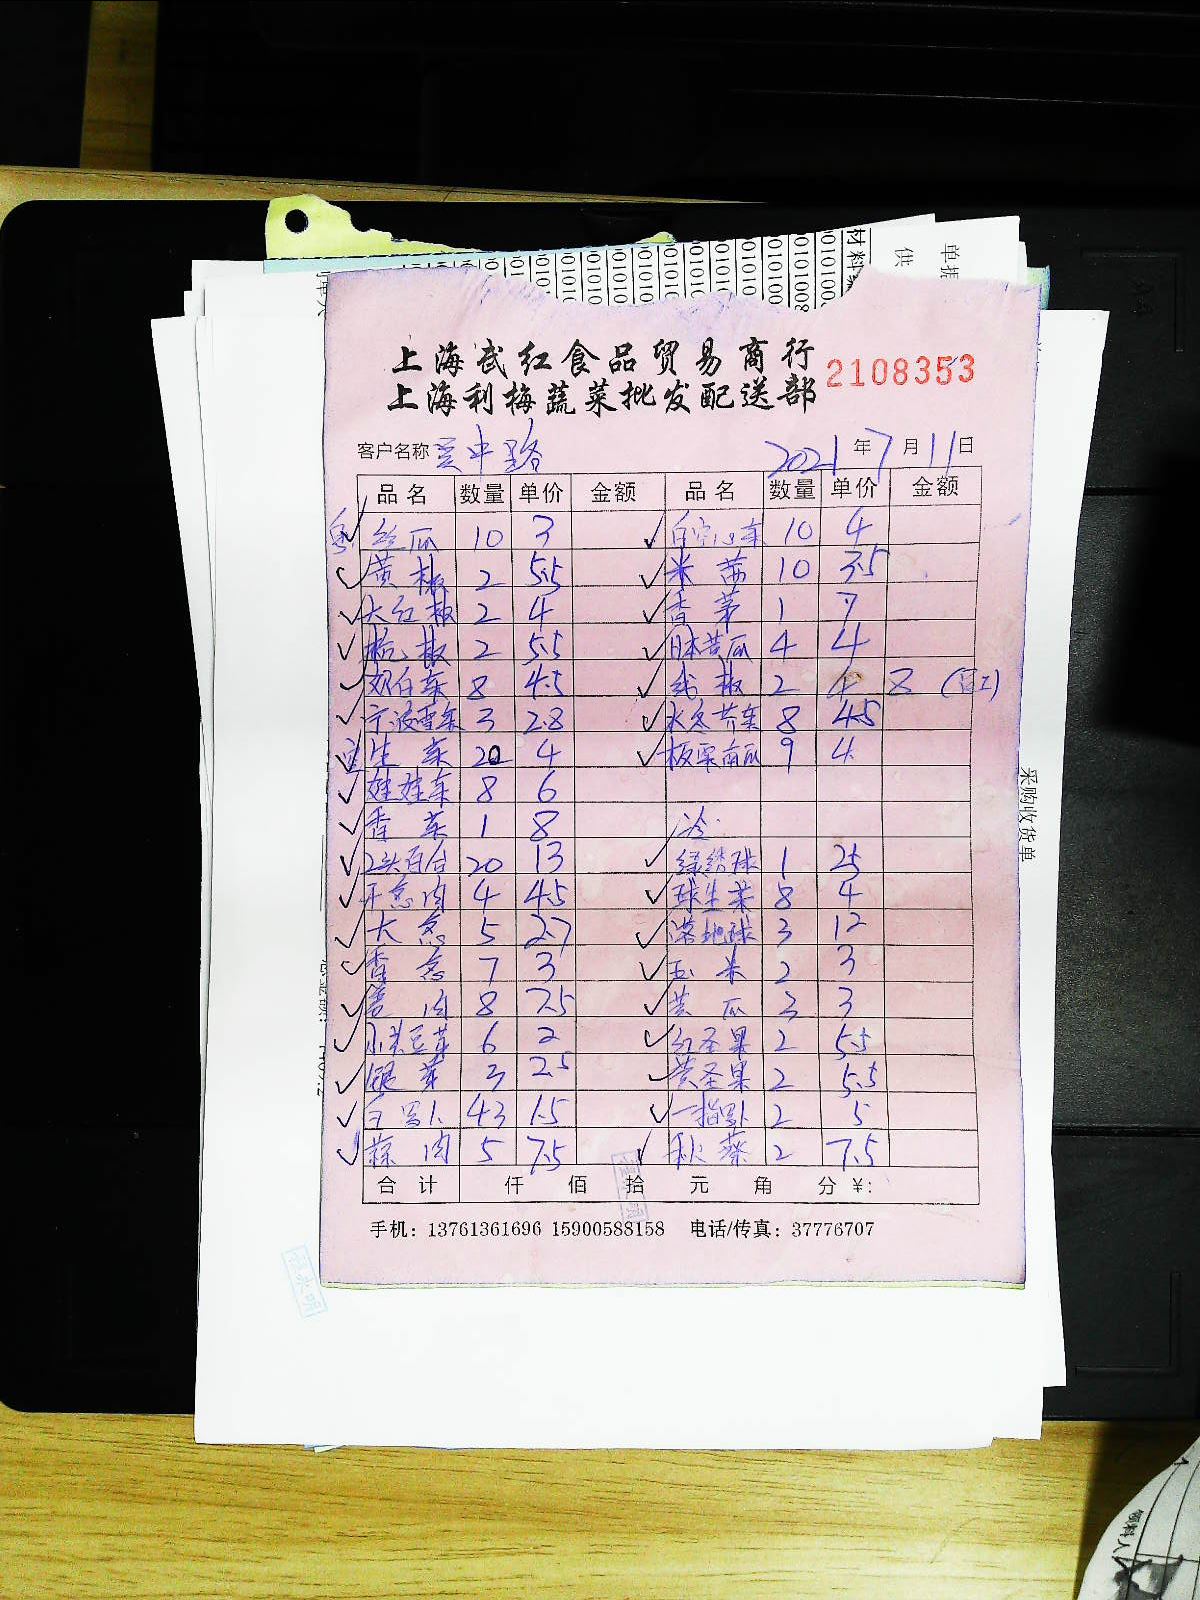 单据
供
材料
上海武红食品贸易商行
2108353
上海利梅蔬菜批发配送部
客户名称 吴中路 2021年7月11日
品名 数量 单价 金额 品名 数量 单价 金额
丝瓜 10 3 白空心菜 10 4
黄椒 2 5.5 米苋 10 3.5
大红椒 2 4 香茅 1 7
尖椒 2 5.5 日本苦瓜 4 4
奶白菜 8 4.5 线椒 2 4 8
宁波雪菜 3 2.8 水冬芥菜 8 4.5
生菜 20 4 板栗南瓜 9 4
娃娃菜 8 6
香菜 1 8 冷
20 13 绿绣球 1 25
洋葱肉 4 4.5 球生菜 8 4
大葱 5 2.7 落地球 3 12
香葱 7 3 玉米 2 3
姜肉 8 7.5 黄瓜 3 3
小黄豆芽 6 2 红圣果 2 5.5
银芽 3 2.5 黄圣果 2 5.5
白罗卜 43 1.5 一指罗卜 2 5
蒜肉 5 7.5 秋葵 2 7.5
合计 仟 佰 拾 元 角 分 ¥:
手机: 13761361696 15900588158 电话/传真: 37776707
采购收货单
领料人